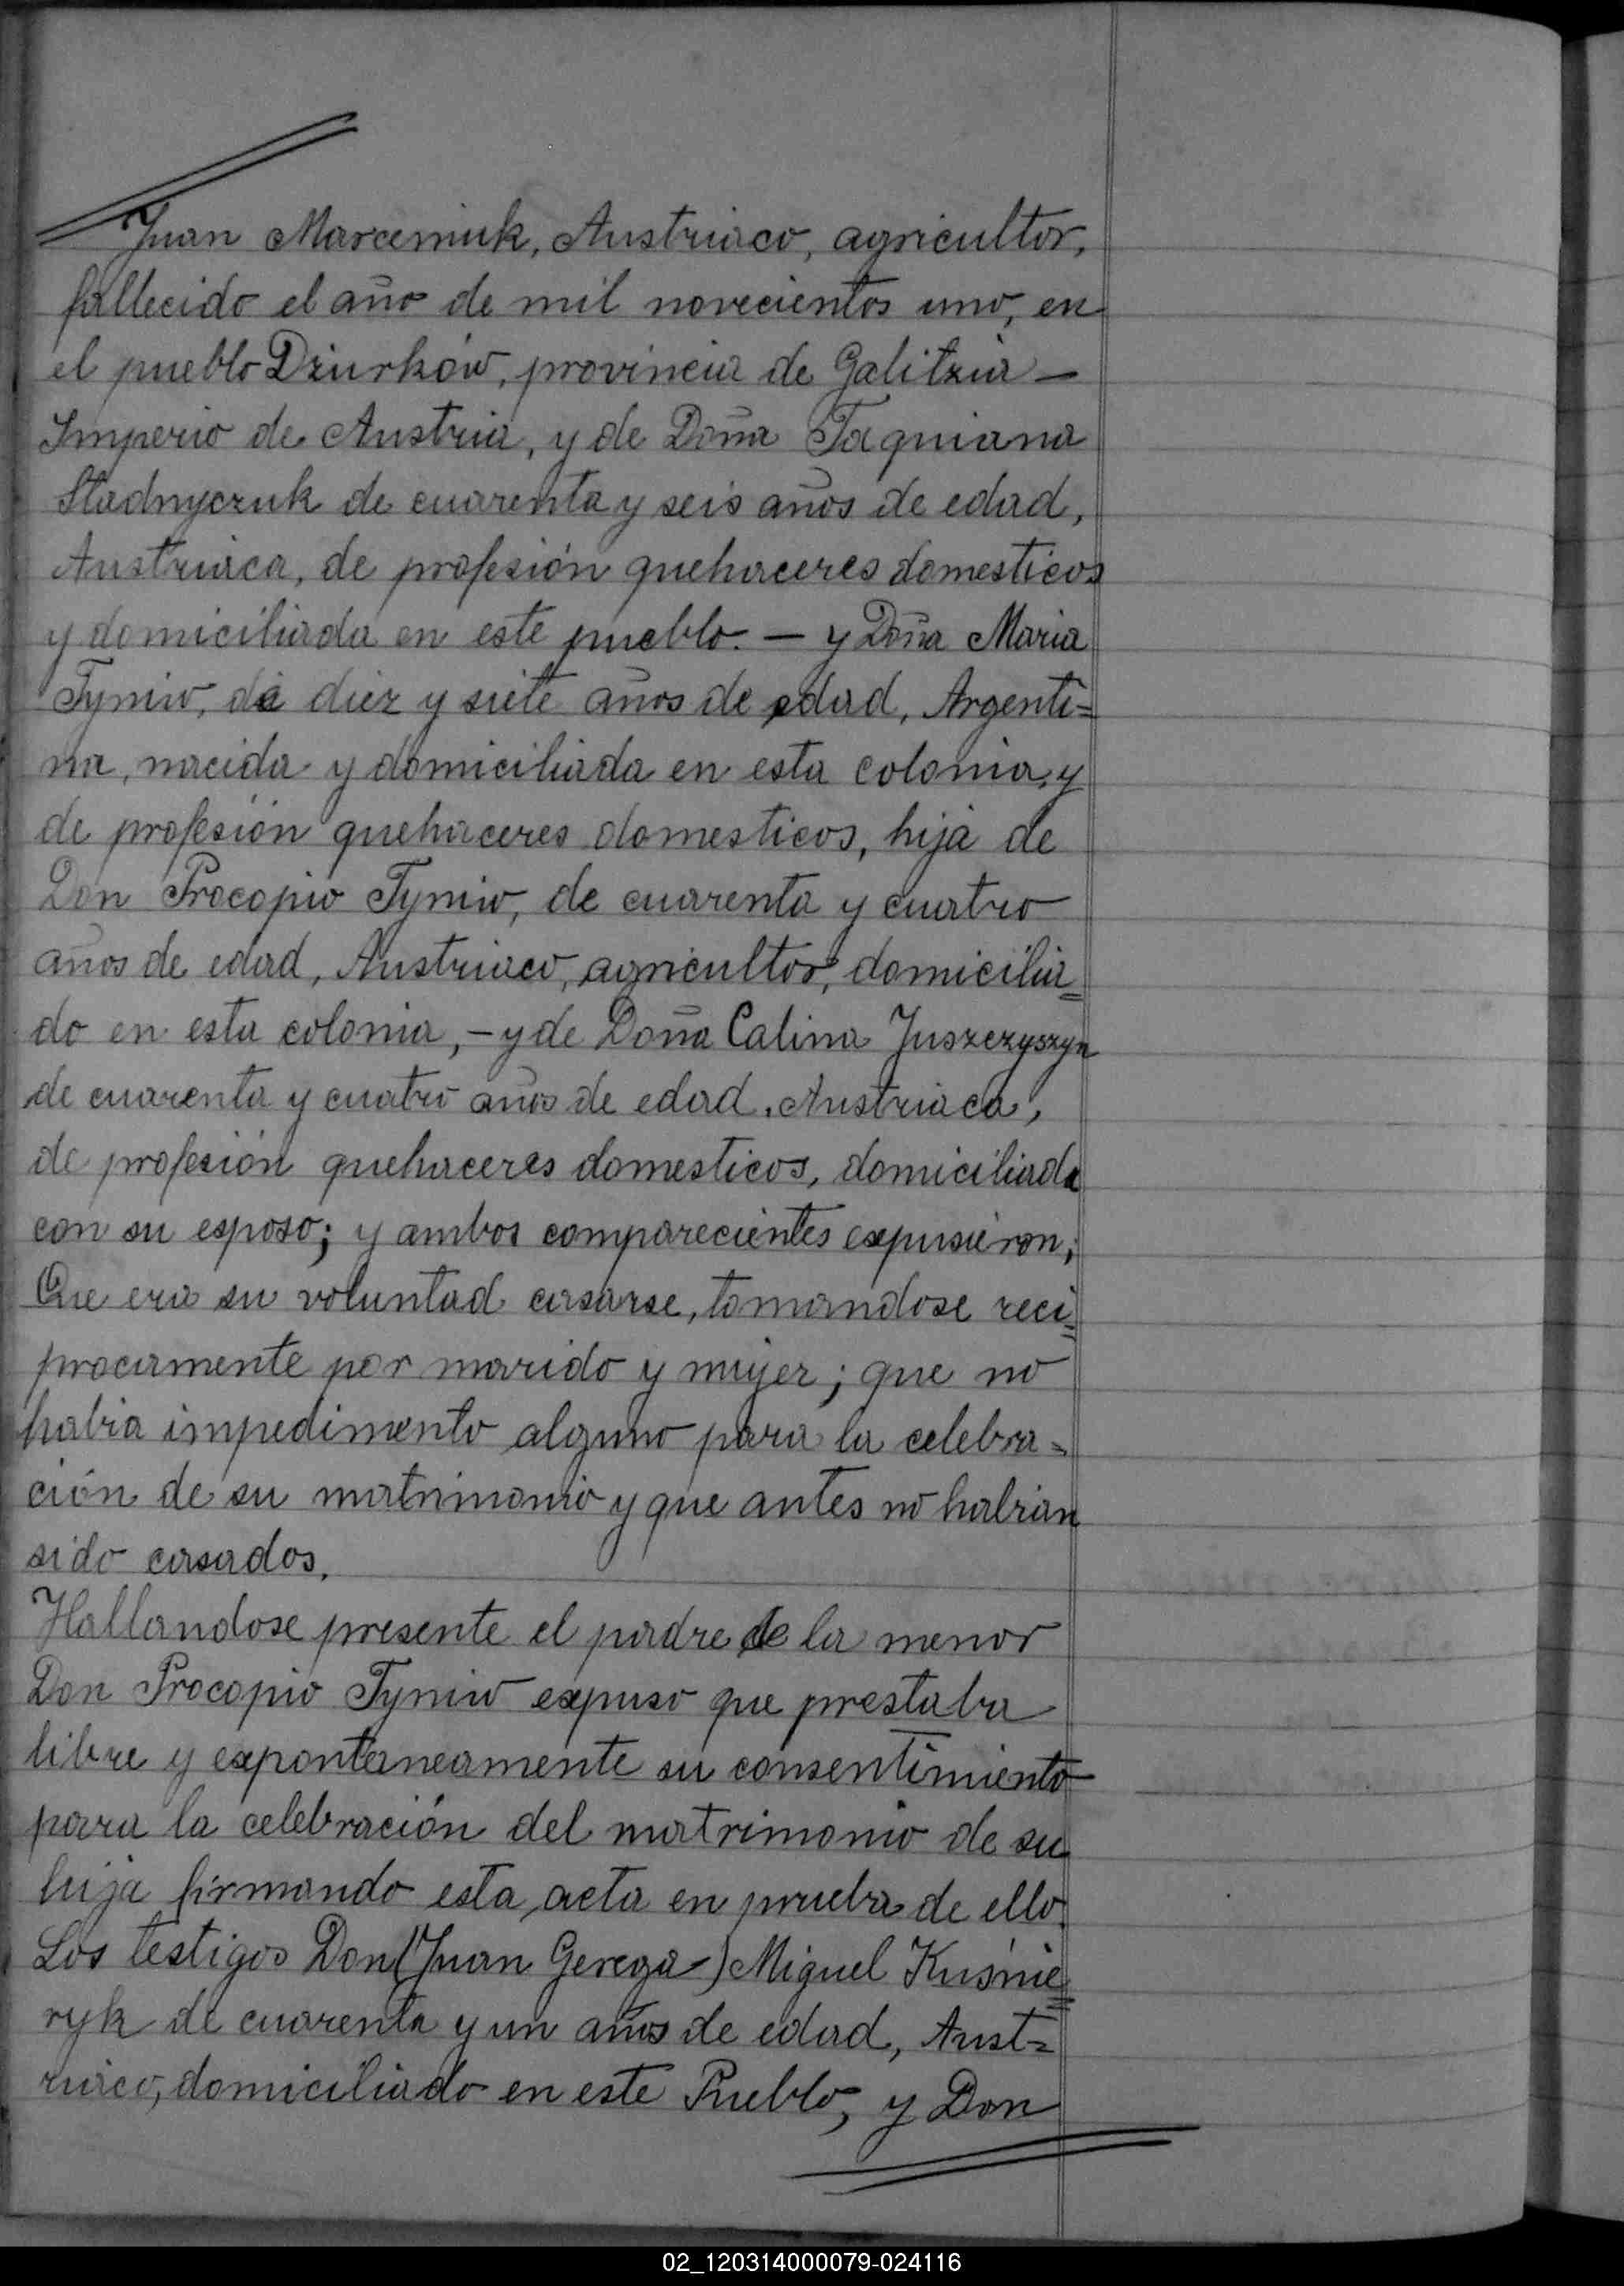 Juan Marceniuk, Austriaco, agricultor,
fallecido el año de mil novecientos uno, en
el pueblo Dziurków, provincia de Galitzia —
Imperio de Austria, y de Doña Taquiana
Stadnyczuk de cuarenta y seis años de edad,
Austriaca, de profesión quehaceres domesticos
y domiciliada en este pueblo. — y Doña Maria
Tyniw, de diez y siete años de edad, Argenti=
na, nacida y domiciliada en esta colonia, y
de profesión quehaceres domesticos, hija de
Don Procopio Tyniw, de cuarenta y cuatro
años de edad, Austriaco, agricultor, domicilia=
do en esta colonia, – y de Doña Calina Juszczyszyn
de cuarenta y cuatro años de edad, Austriaca,
de profesión quehaceres domesticos, domiciliada
con su esposo; y ambos comparecientes expusieron;
Que era su voluntad casarse, tomandose reci=
procamente por marido y mujer; que no
habia impedimento alguno para la celebra=
ción de su matrimonio y que antes no habian
sido casados.
Hallandose presente el padre de la menor
Don Procopio Tyniw expuso que prestaba
libre y espontaneamente su consentimiento
para la celebración del matrimonio de su
hija firmando esta acta en prueba de ello.
Los testigos Don (Juan Gerega) Miguel Kuśnie=
ryk de cuarenta y un años de edad, Aust=
riaco, domiciliado en este Pueblo, y Don
02_120314000079-024116